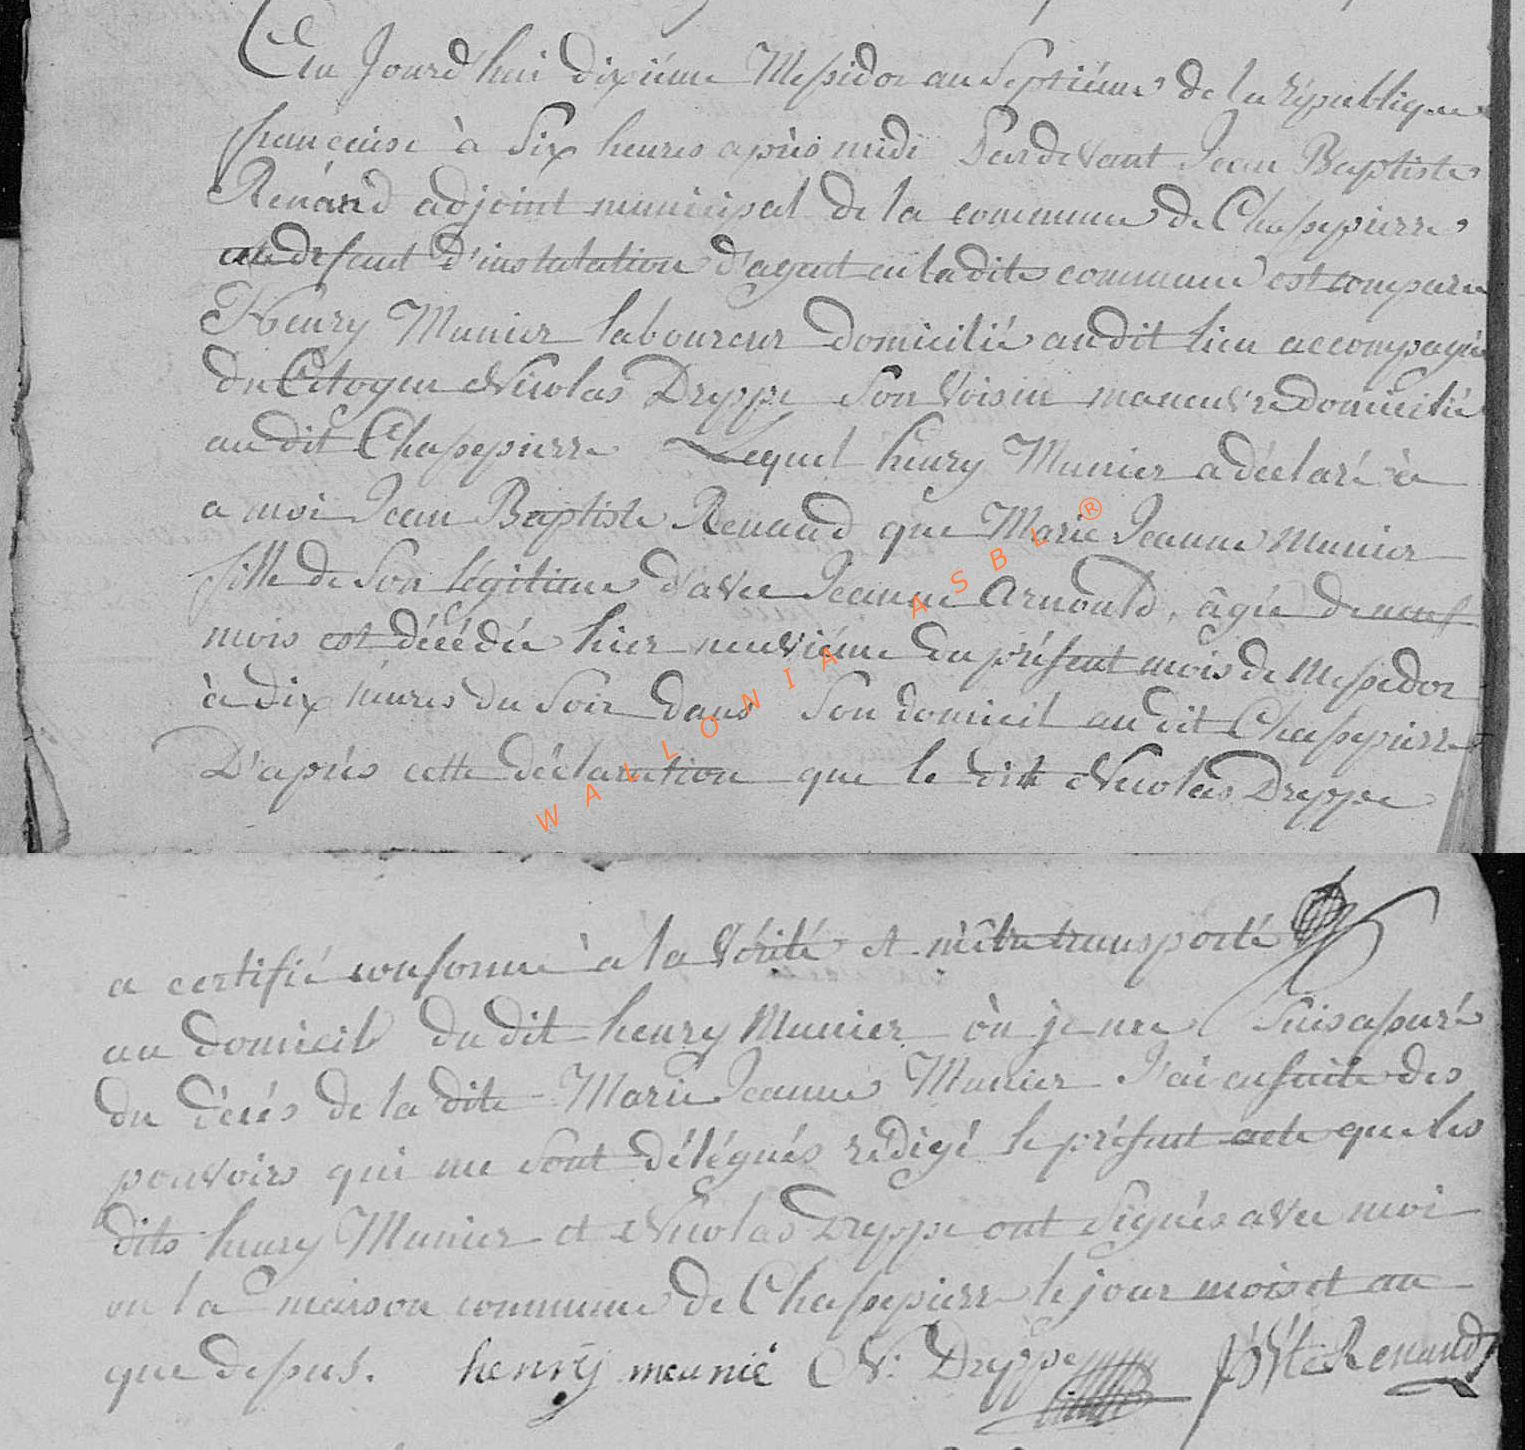 Cen Jourd'hui dixiéme Messidor an Septiéme de la République
française à Six heures après midi Pardevant Jean Baptiste
Renaud adjoint municipal de la commune de Chassepierre
au defaut d'instalation d'agent en la dite commune est comparu
Henry Munier laboureur domicilié au dit lieu accompagné
du Citoyen Nicolas Dreppe Son Voisin maneuvre domicilié
au dit Chassepierre Lequel henry Munier a déclaré à
a moi Jean Baptiste Renaud que Marie Jeanne Munier
fille de Son légitime d'avec Jeanne Arnould, âgée de neuf
mois est décédée hier neuviéme du présent mois de Messidor
à dix heures du Soir dans Son domicil au dit Chassepierre
D'après cette déclaration que le dit Nicolas Dreppe
WALLONIA ASBL ®
a certifié conforme à la Vérité et m'être transporté
au domicil du dit henry Munier où je me Suis assuré
du décés de la dite Marie Jeanne Munier J'ai ensuite des
pouvoirs qui me Sont délégués rédigé le présent acte que les
dits henry Munier et Nicolas Dreppe ont Signés avec moi
en la maison commune de Chassepierre le jour mois et an
que dessus. henry meunié N: Dreppe J Bte Renaud